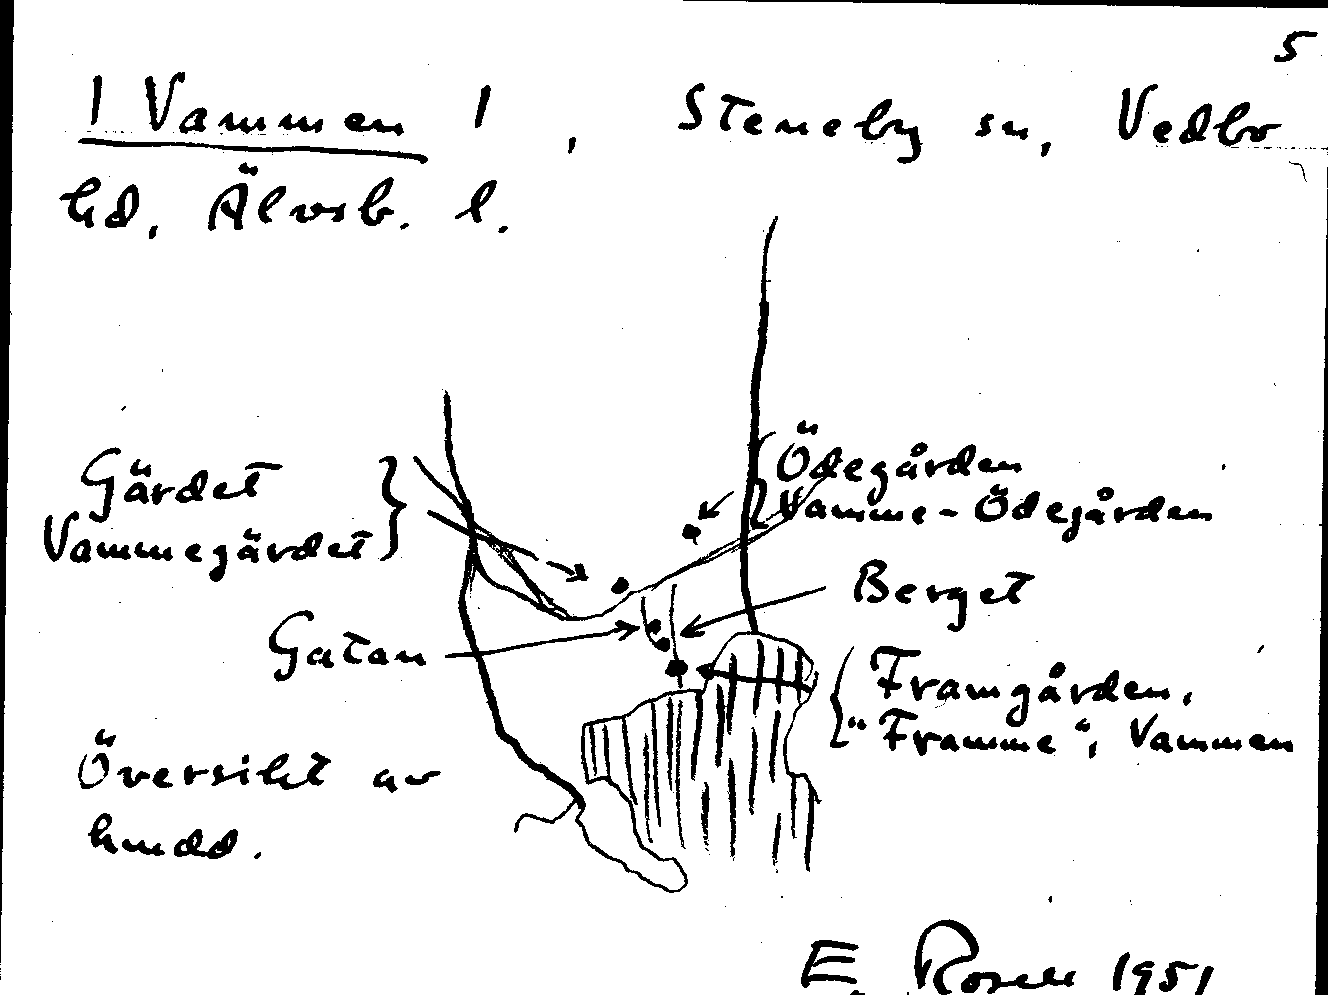 5
1 Vammen 1, Steneby sn, Vedbo
hd, Älvsb. l.
Gärdet
Vammegärdet
Ödegården
Vamme-Ödegården
Berget
Gatan
Framgården,
"Framme", Vammen
Översikt av
hmdd.
E. Rosell 1951